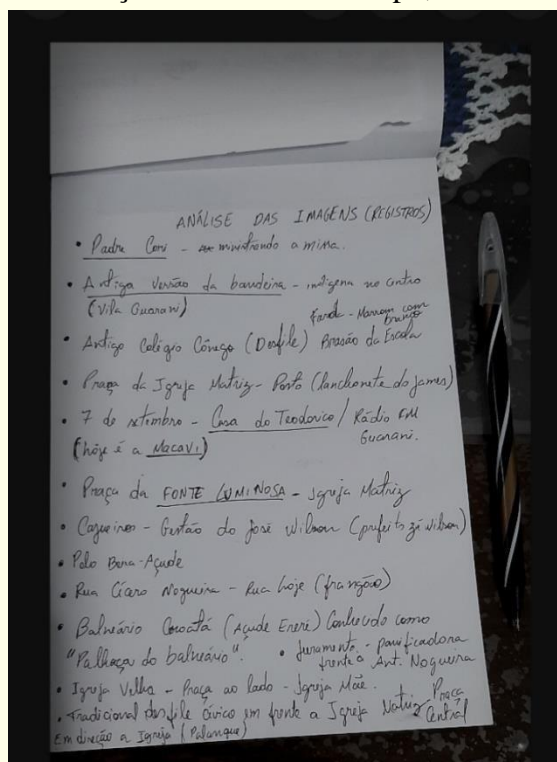 ANÁLISE DAS IMAGENS (REGISTROS)
• Padre Coni - ministrando a missa.
• Antiga Versão da bandeira - indígena no centro
(Vila Guarani)
Farda - Marrom com branco
• Antigo Colégio Cônego (Desfile) Brasão da Escola
• Praça da Igreja Matriz - Posto (lanchonete do james)
• 7 de setembro - Casa do Teodorico / Rádio FM
(hoje é a Macavi) Guarani.
• Praça da FONTE LUMINOSA - Igreja Matriz
• Cajueiros - Gestão do José Wilson (prefeito zé wilson)
• Polo Bena - Açude
• Rua Cícero Nogueira - Rua hoje (frangão)
• Balneário Coroatá (Açude Ererê) Conhecido como
"Palhoça do balneário". • juramento - panificadora
frente a Ant. Nogueira
• Igreja Velha - Praça ao lado - Igreja Mãe.
• Tradicional desfile cívico em frente a Igreja Matriz Praça Central
Em direção a Igreja (Palanque)